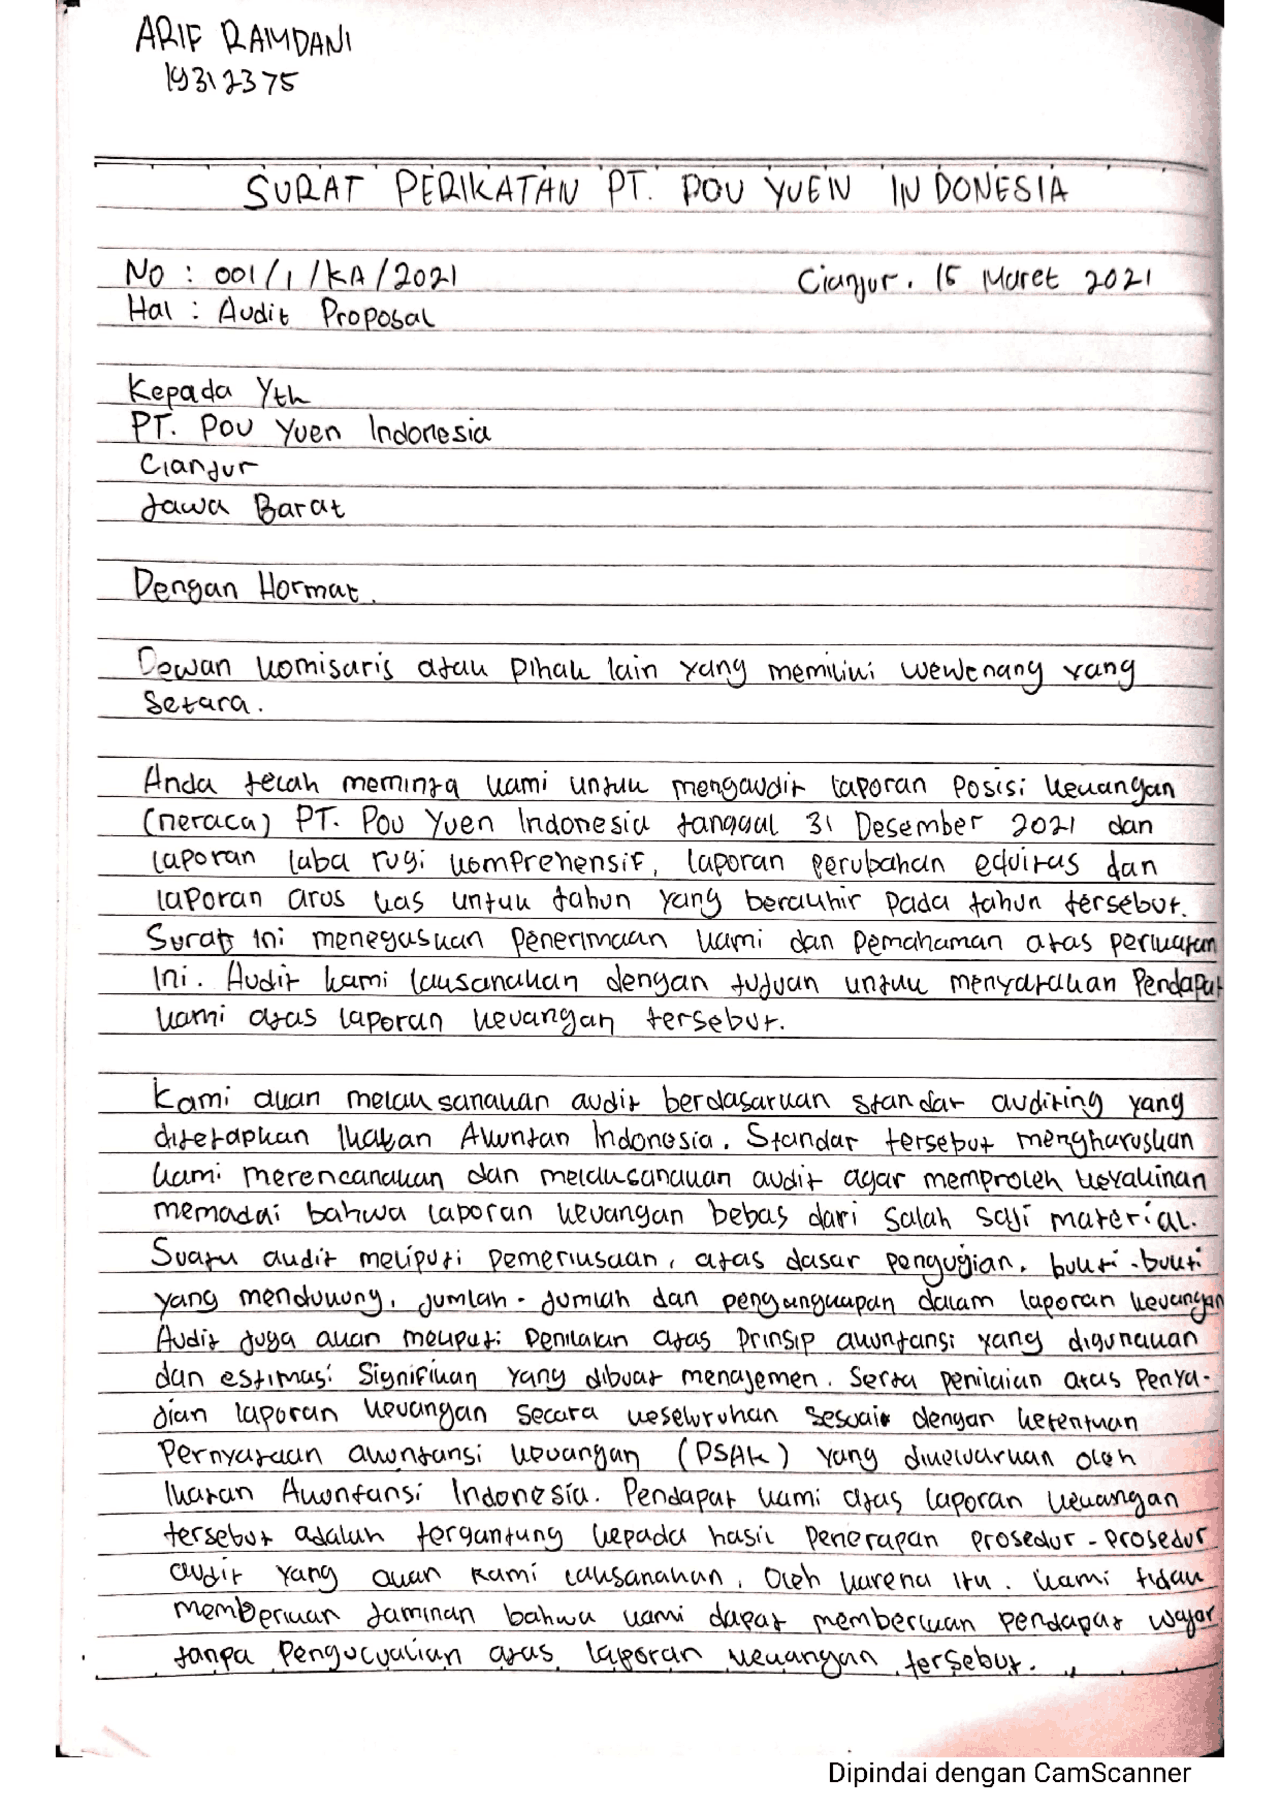 ARIF RAMDANI
19312375
SURAT PERIKATAN PT. POU YUEN INDONESIA
No : 001/1/KA/2021 Cianjur. 15 Maret 2021
Hal : Audit Proposal
Kepada Yth
PT. Pou Yuen Indonesia
Cianjur
Jawa Barat
Dengan Hormat.
Dewan komisaris atau pihak lain yang memiliki wewenang yang
Setara.
Anda telah meminta kami untuk mengaudit laporan posisi keuangan
(neraca) PT. Pou Yuen Indonesia tanggal 31 Desember 2021 dan
laporan laba rugi komprehensif, laporan perubahan equitas dan
laporan arus kas untuk tahun yang berakhir pada tahun tersebut.
Surat ini menegaskan penerimaan kami dan pemahaman atas perikatan
ini. Audit kami laksanakan dengan tujuan untuk menyatakan Pendapat
kami atas laporan keuangan tersebut.
Kami akan melaksanakan audit berdasarkan standar auditing yang
ditetapkan Ikatan Akuntan Indonesia. Standar tersebut mengharuskan
kami merencanakan dan melaksanakan audit agar memproleh keyakinan
memadai bahwa laporan keuangan bebas dari salah saji material.
Suatu audit meliputi pemeriksaan, atas dasar pengujian, bukti-bukti
yang mendukung, jumlah-jumlah dan pengungkapan dalam laporan keuangan
Audit juga akan meliputi penilaian atas prinsip akuntansi yang digunakan
dan estimasi signifikan yang dibuat menajemen. Serta penilaian atas Penya-
jian laporan keuangan secara keseluruhan sesuai dengan ketentuan
Pernyataan akuntansi keuangan (PSAK) yang dikeluarkan oleh
Ikatan Akuntansi Indonesia. Pendapat kami atas laporan keuangan
tersebut adalah tergantung kepada hasil penerapan prosedur-prosedur
audit yang akan kami laksanakan. Oleh karena itu. kami tidak
memberikan jaminan bahwa kami dapat memberikan pendapat wajar
tanpa pengucualian atas laporan keuangan tersebut.
Dipindai dengan CamScanner